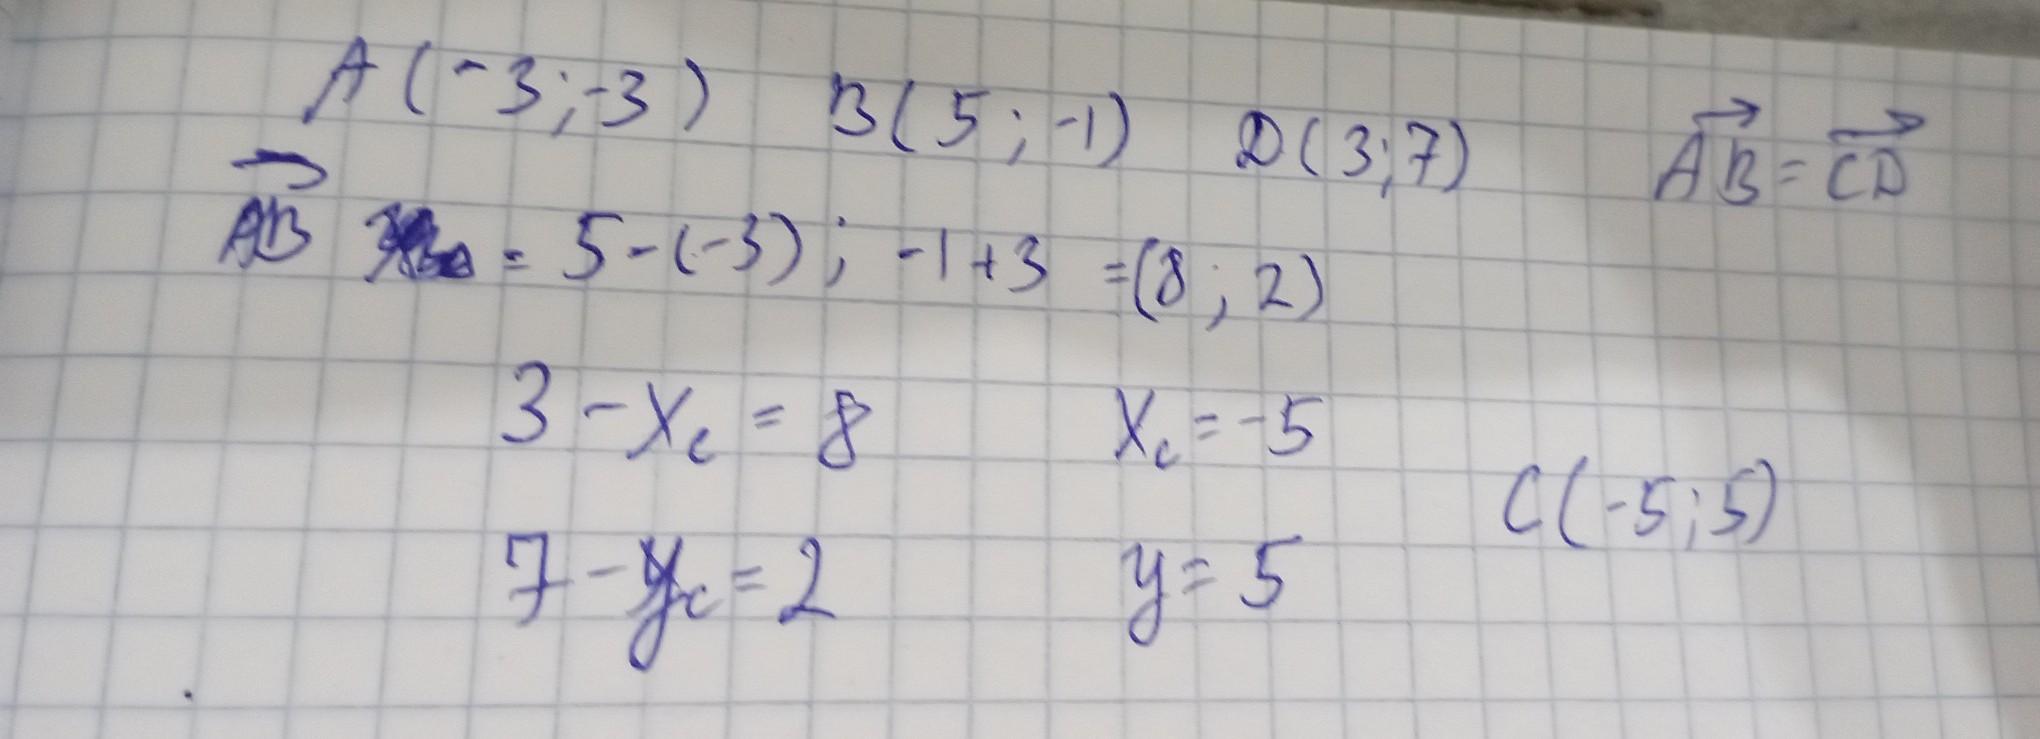 A(-3;-3) B(5;-1) D(3;7) AB=CD
AB = 5-(-3); -1+3 =(8;2)
3-Xc=8 Xc=-5
C(-5;5)
7-yc=2 y=5